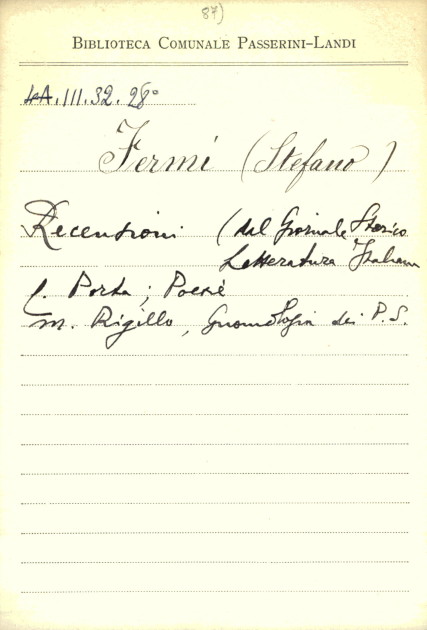 87)
BIBLIOTECA COMUNALE PASSERINI-LANDI
4A.III.32.28°
Fermi (Stefano)
Recensioni (dal Giornale Storico
Letteratura Italiana
C. Porta ; Poesie
M. Rigillo, Gnomologia dei P.S.